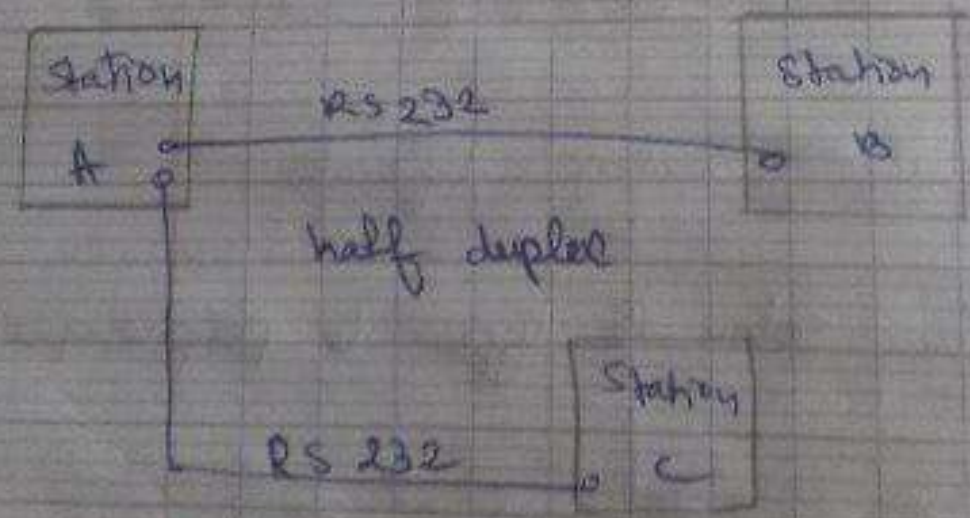 Station
A
RS 232
Station
B
half duplex
Station
C
RS 232